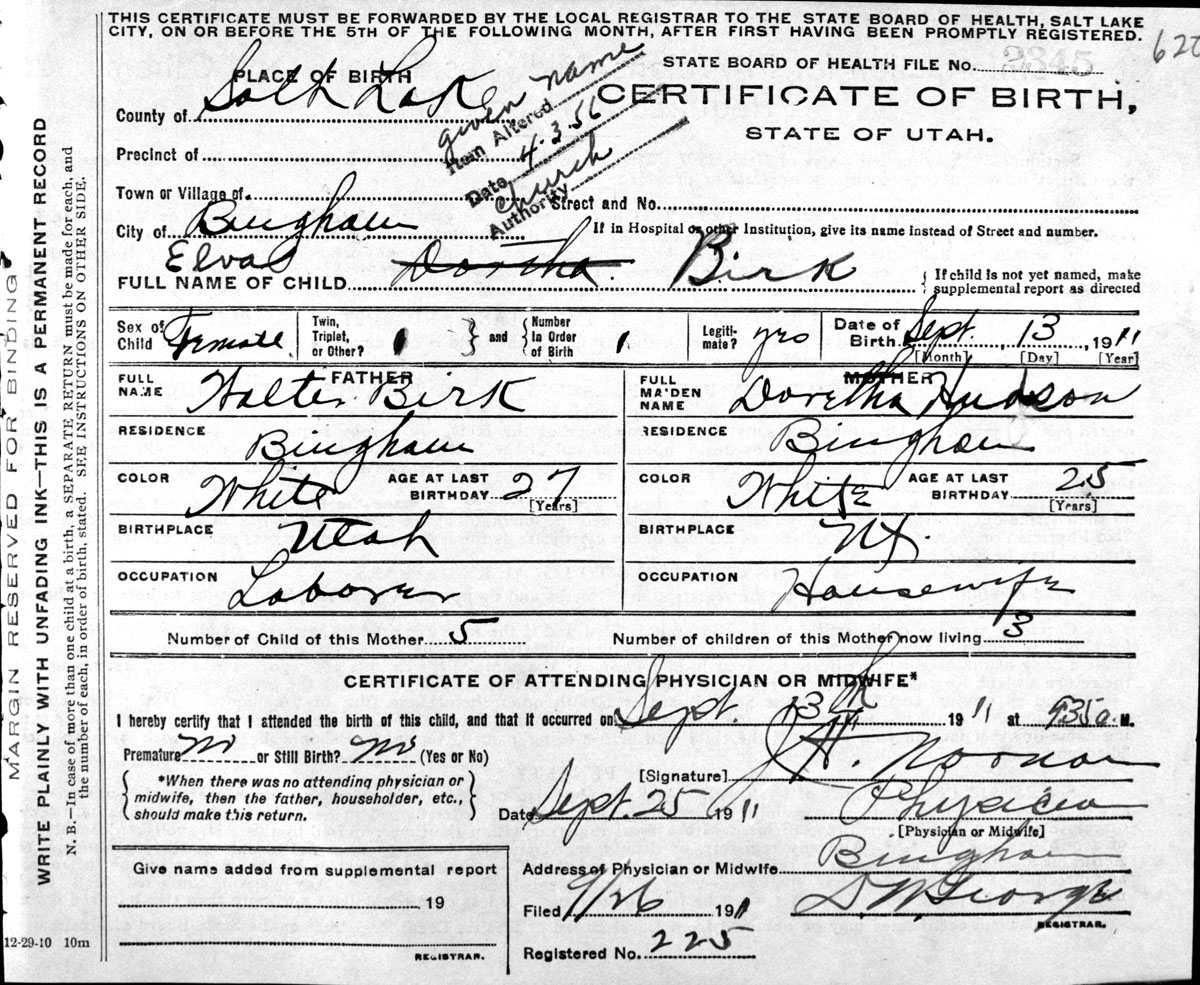 THIS CERTIFICATE MUST BE FORWARDED BY THE LOCAL REGISTRAR TO THE STATE BOARD OF HEALTH, SALT LAKE
CITY, ON OR BEFORE THE 5TH OF THE FOLLOWING MONTH, AFTER FIRST HAVING BEEN PROMPTLY REGISTERED.
PLACE OF BIRTH
STATE BOARD OF HEALTH FILE NO. 2345
County of Salt Lake
CERTIFICATE OF BIRTH,
STATE OF UTAH.
given name
Item Altered
Date 4-3-56
Church
Authority
Precinct of
Town or Village of
Street and No.
City of Bingham
If in Hospital or other Institution, give its name instead of Street and number.
Elva
FULL NAME OF CHILD Dortha Birk
If child is not yet named, make
supplemental report as directed
Sex of Child Female
Twin, Triplet, or Other? 1 and Number In Order of Birth 1
Legiti-mate? yes
Date of Birth Sept. 13, 1911
[Month] [Day] [Year]
FATHER
FULL NAME Walter Birk
RESIDENCE Bingham
COLOR White AGE AT LAST BIRTHDAY 27
[Years]
BIRTHPLACE Utah
OCCUPATION Laborer
MOTHER
FULL MAIDEN NAME Doretha Hudson
RESIDENCE Bingham
COLOR White AGE AT LAST BIRTHDAY 25
[Years]
BIRTHPLACE
OCCUPATION Housewife
Number of Child of this Mother 5 Number of children of this Mother now living 3
CERTIFICATE OF ATTENDING PHYSICIAN OR MIDWIFE*
I hereby certify that I attended the birth of this child, and that it occurred on Sept. 13th 1911 at 935 a. M.
Premature no or Still Birth? no (Yes or No)
*When there was no attending physician or
midwife, then the father, householder, etc.,
should make this return.
[Signature]
Date Sept. 25 1911 Physician
[Physician or Midwife]
Address of Physician or Midwife Bingham
Give name added from supplemental report
19
REGISTRAR.
Filed 9/26 1911 D. W. George
REGISTRAR.
Registered No. 225
12-29-10 10m
MARGIN RESERVED FOR BINDING
WRITE PLAINLY WITH UNFADING INK—THIS IS A PERMANENT RECORD
N. B.—In case of more than one child at a birth, a SEPARATE RETURN must be made for each, and
the number of each, in order of birth, stated. SEE INSTRUCTIONS ON OTHER SIDE.